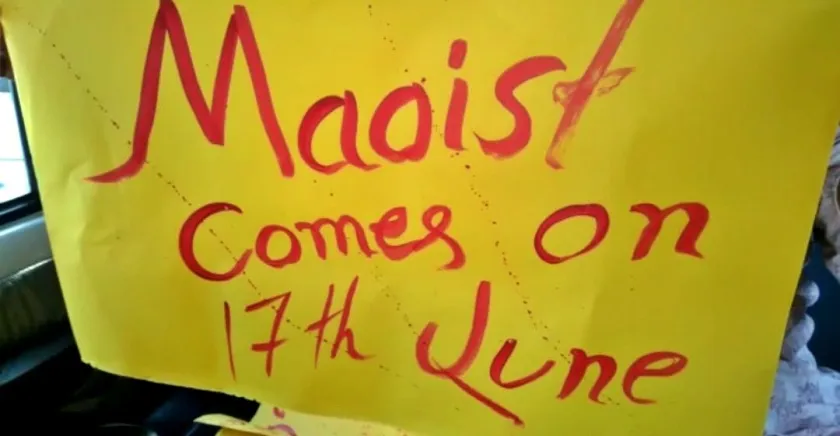 Maoist
Comes on
17th June